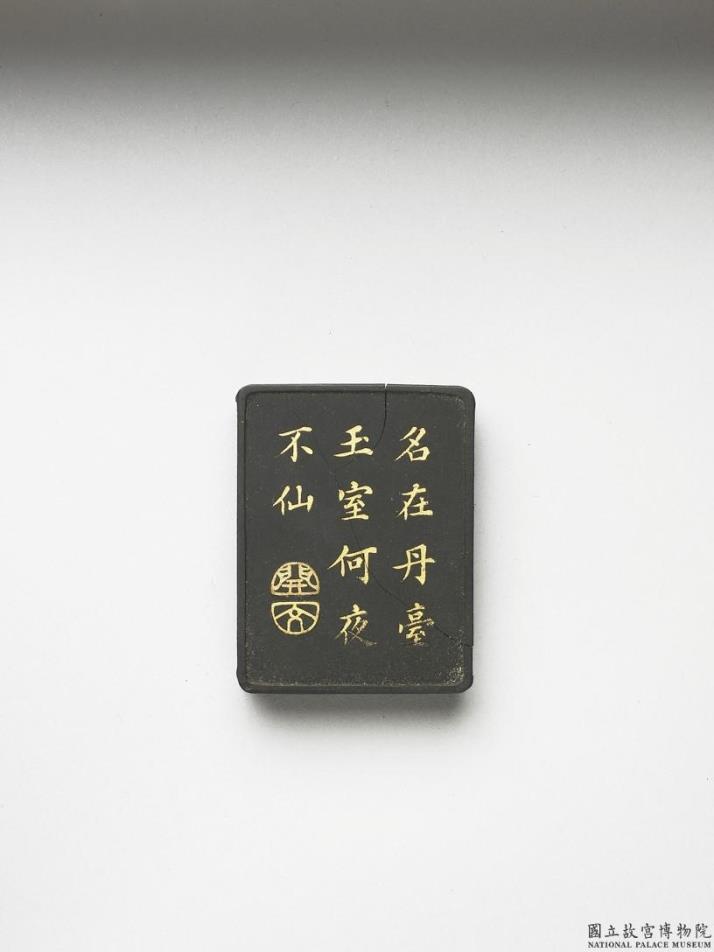 名在丹臺
玉室何夜
不仙
開文
國立故宮博物院
NATIONAL PALACE MUSEUM